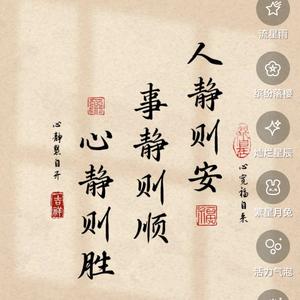 心宽福自来
人静则安
事静则顺
心静则胜
心静慧自开
吉祥
流星雨
缤纷落樱
灿烂星辰
繁星月兔
活力气泡